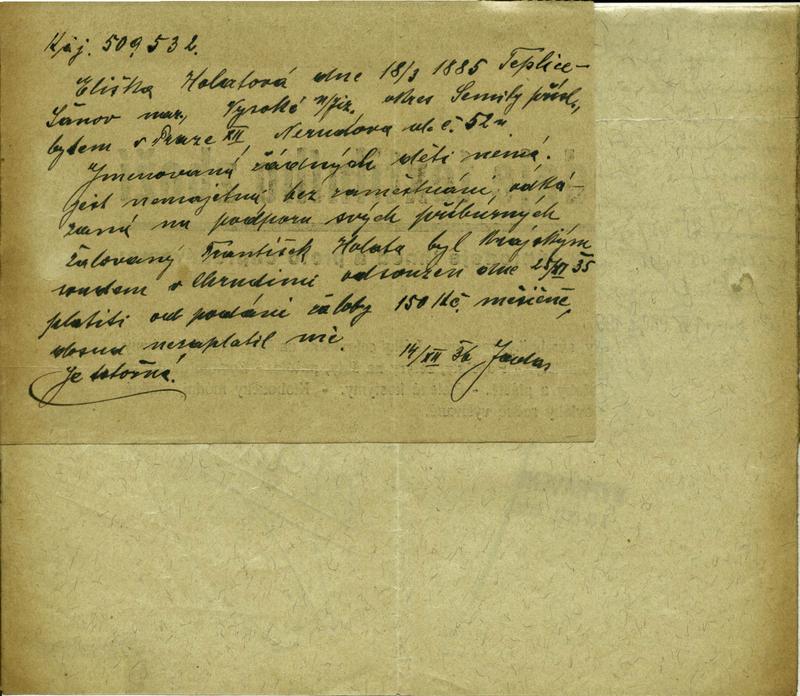 509532.
Eliška Holatová dne 18/3 1885 Teplice-
Šanov nar., Vysoké n/Jiz. okres Semily přísl.,
bytem v Praze XII, Nerudova ul. č. 52
Jmenovaná žádných dětí nemá.
jest nemajetná, bez zaměstnání, odká-
zaná na podporu svých příbuzných
Žalovaný František Holata byl Krajským
soudem v Chrudimi odsouzen dne 25/XI 35
platiti od podání žaloby 150 Kč. měsíčně,
dosud nezaplatil nic.
Je totožná.
14/XII 36